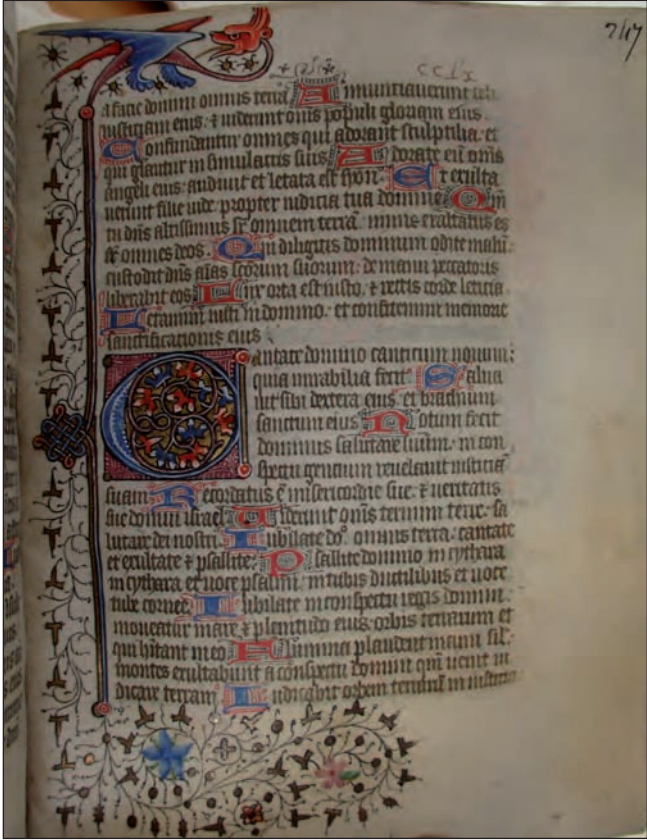 247
cclx
a facie domini omnis terra Annuntiaverunt celi
iusticiam eius: & viderunt omnis populi gloriam eius
Confundantur omnes qui adorant sculptilia: et
qui gloriantur in simulacris suis Adorate eum omnes
angeli eius: audivit et letata est syon Et exulta
verunt filie iude: propter iudicia tua domine Qm
tu dns altissimus sr omnem terra: nimis exaltatus es
sr omnes deos. Qui diligitis dominum odite malu:
custodit dns aias scorum suorum: de manu peccatoris
liberabit eos Lux orta est iusto: & rectis corde leticia
Letamini iusti in domino: et confitemini memorie
sanctificationis eius
Cantate domino canticum novum:
quia mirabilia fecit Salva
vit sibi dextera eius: et brachium
sanctum eius Notum fecit
dominus salutare suum: in con
spectu gentium revelavit iusticia
suam Recordatus e misericordie sue: & veritatis
sue domui israel Viderunt omnes termini terre: sa
lutare dei nostri Iubilate do omnis terra: cantate
et exultate & psallite Psallite domino in cythara
in cythara et voce psalmi: in tubis ductilibus et voce
tube cornee Iubilate in conspectu regis domini:
moveatur mare & plenitudo eius: orbis terrarum et
qui hitant in eo Flumina plaudent manu sil
montes exultabunt a conspectu domini: qm venit iu
dicare terram Iudicabit orbem terrarum in iusticia